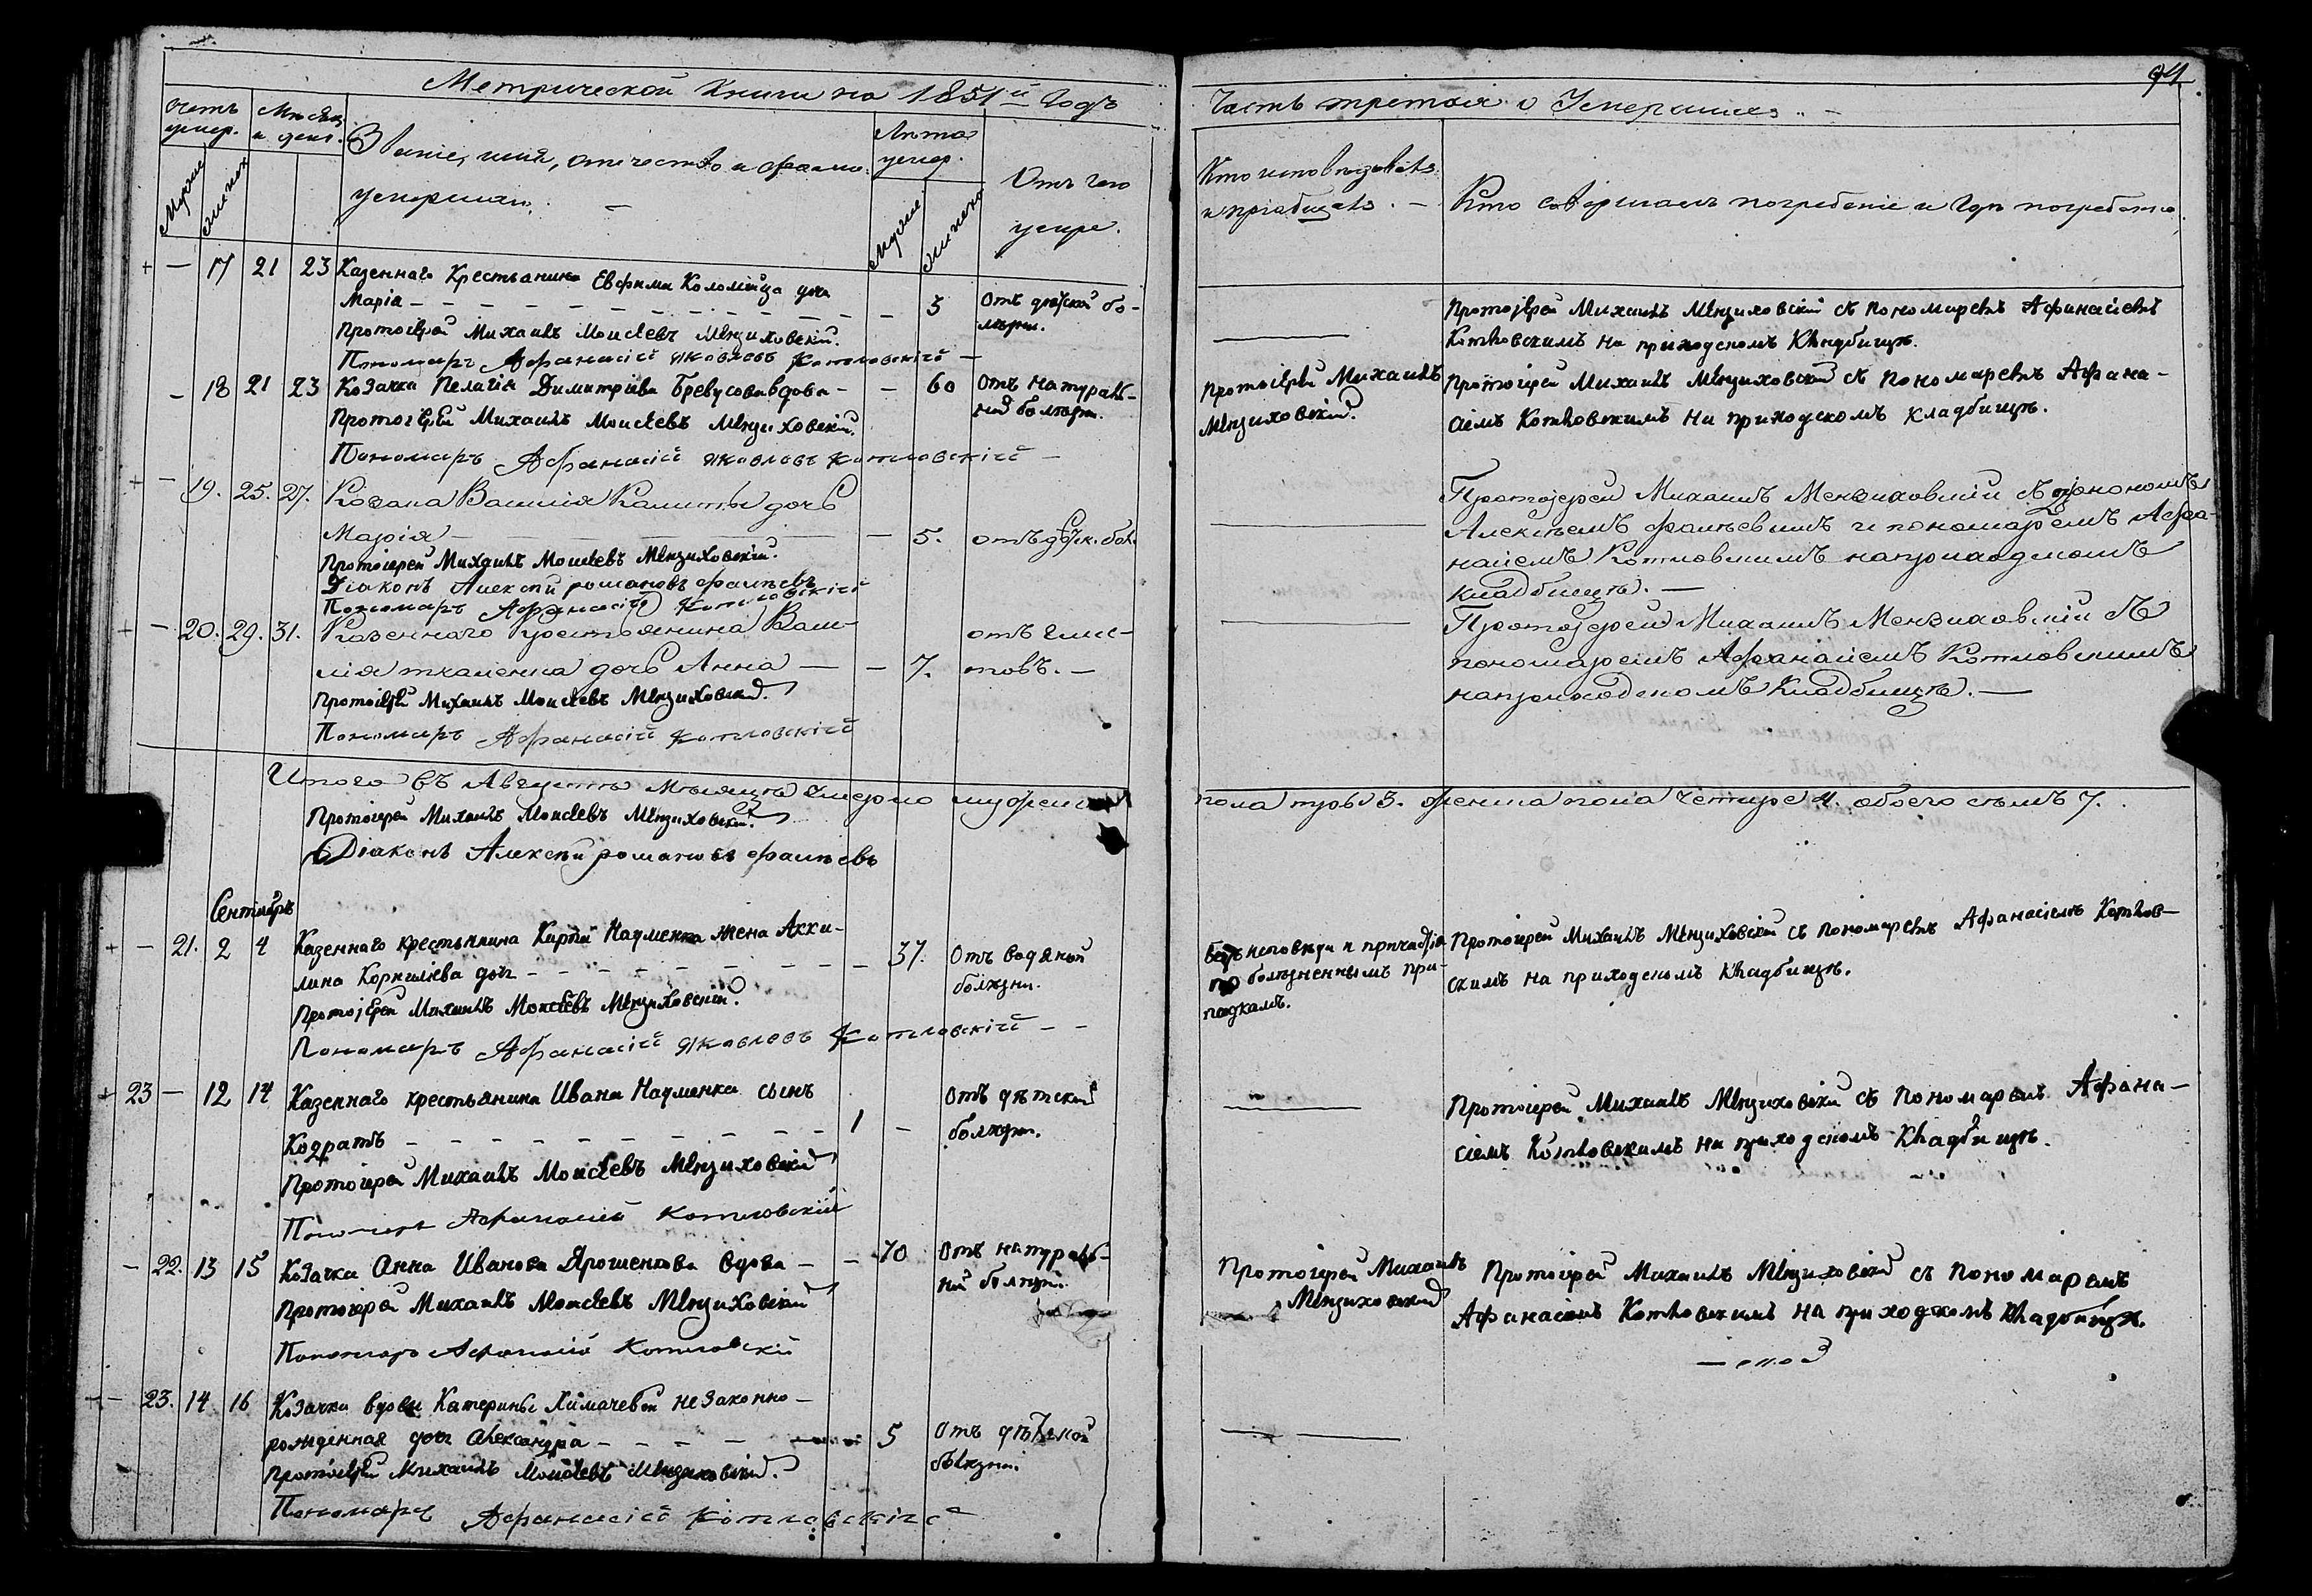 Метрической Книги на 1851й Годъ
Часть третая о Умершихъ
94
Счетъ умер.
Мѣсяц. и день.
Званіе, имя, отчество и фамил. умершаго
Лѣта умер.
Отъ чего умре.
Кто исповѣдовалъ и пріобщалъ.
Кто совершалъ погребеніе и гдѣ погребены
Мужес
Женск
Мужес
Женско
+ — 17 21 23 Казеннаго Крестьянина Евфима Коломійца дочь
Марія — — 3 Отъ дѣтской бо-
лѣзни.
Протоіерей Михаилъ Моисеевъ Мензиховскій.
Пономарь Афанасій Яковлевъ Котловскій —
Протоіерей Михаилъ Мензиховскій съ пономаремъ Афанасіемъ
Котловскимъ на приходскомъ Кладбищѣ.
— 18 21 23 Козачка Пелагія Димитріева Бревусова вдова — — 60 Отъ натураль-
ной болѣзни.
Протоіерей Михаилъ Моисеевъ Мензиховскій.
Пономарь Афанасій Яковлевъ Котловскій —
Протоіерей Михаилъ
Мензиховскій.
Протоіерей Михаилъ Мензиховскій съ Пономаремъ Афана-
сіемъ Котловскимъ на приходскомъ кладбищѣ.
+ — 19. 25. 27. Козака Василія Калиты дочь
Марія — — 5. отъ дѣтск. бол.
Протоіерей Михаилъ Моисеевъ Мензиховскій.
Діаконъ Алексѣй романовъ фалѣевъ
Пономарь Афанасій Котловскій
Протоіерей Михаилъ Мензиховскій съ діакономъ
Алексѣемъ фалѣевимъ и пономаремъ Афа-
насіемъ Котловскимъ на приходскомъ
кладбищѣ. —
+ — 20. 29. 31. Казеннаго Крестьянина Васи-
лія ткаченка дочь Анна — — 7. отъ глис-
товъ. —
Протоіерей Михаилъ Моисеевъ Мензиховскій.
Пономарь Афанасій Котловскій
Протоіерей Михаилъ Мензиховскій съ
пономаремъ Афанасіемъ Котловскимъ
на приходскомъ Кладбищѣ. —
Итого въ Августѣ мѣсяцѣ умерло мужеска
пола три 3. женска пола четире 4. обоего съимъ 7.
Протоіерей Михаилъ Моисеевъ Мензиховскій.
Діаконъ Алексѣй романовъ фалѣевъ
Сентябрь
+ — 21. 2 4 Казеннаго крестьянина Карпа Науменка жена Аки-
лина Корнилѣева дочь — — 37. Отъ водяной
болѣзни.
Протоіерей Михаилъ Моисеевъ Мензиховскій.
Пономарь Афанасій Яковлевъ Котловскій — —
безъ исповѣди и причастія
по болѣзненнымъ при-
падкамъ.
Протоіерей Михаилъ Мензиховскій съ пономаремъ Афанасіемъ Котлов-
скимъ на приходскомъ Кладбищѣ.
+ 23 — 12 14 Казеннаго крестьянина Ивана Науменка сынъ
Кодратъ — 1 — Отъ дѣтской
болѣзни.
Протоіерей Михаилъ Моисеевъ Мензиховскій
Пономарь Афанасій Котловскій
Протоіерей Михаилъ Мензиховскій съ Пономаремъ Афана-
сіемъ Котловскимъ на приходскомъ Кладбищѣ.
— 22. 13 15 Козачка Анна Иванова Ярошенкова вдова — — 70 Отъ натураль-
ной болѣзни.
Протоіерей Михаилъ Моисеевъ Мензиховскій
Пономарь Афанасій Котловскій
Протоіерей Михаилъ
Мензиховскій
Протоіерей Михаилъ Мензиховскій съ Пономаремъ
Афанасіемъ Котловскимъ на приходскомъ кладбищѣ.
— 23. 14 16 Козачки вдовы Катерины Химачевой незаконно-
рожденная дочь Александра — 5 Отъ дѣтской
болѣзни.
Протоіерей Михаилъ Моисеевъ Мензиховскій.
Пономарь Афанасій Котловскій